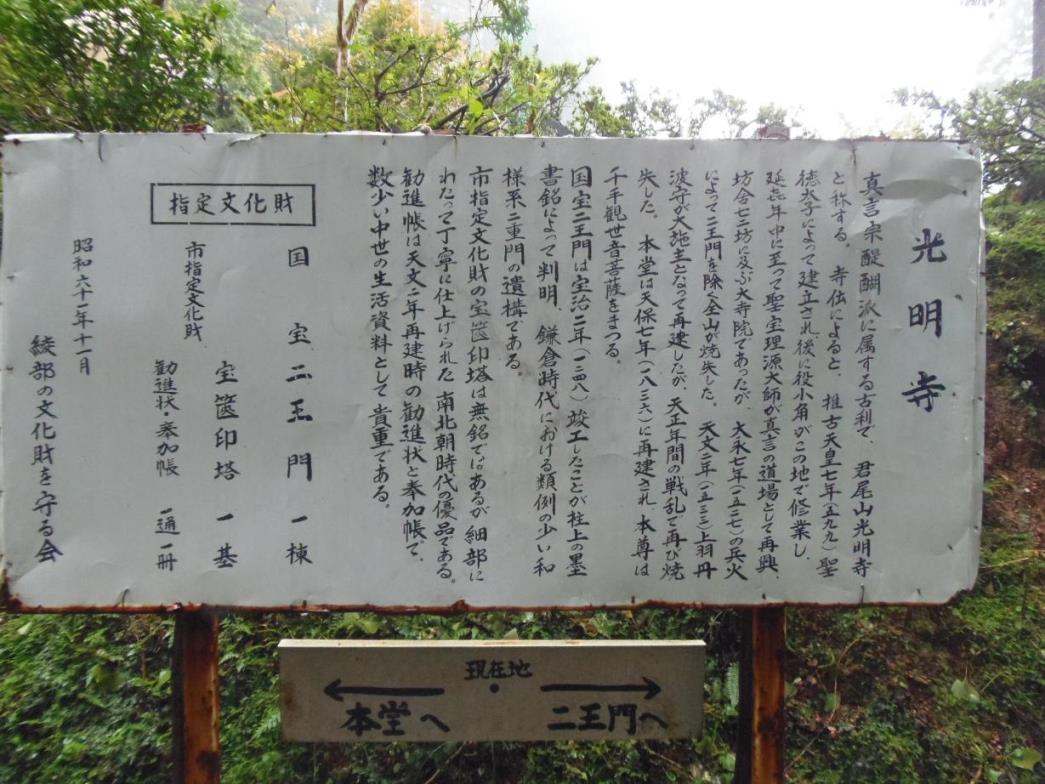 光明寺
真言宗醍醐派に属する古刹で、君尾山光明寺
と称する。寺伝によると、推古天皇七年(五九九)聖
徳太子によって建立され、後に役小角がこの地で修業し、
延㐂年中に至って聖宝理源大師が真言の道場として再興、
坊舎七二坊に及ぶ大寺院であったが、大永七年(一五二七)の兵火
によって二王門を除く全山が焼失した。天文二年(一五三三)上羽丹
波守が大施主となって再建したが、天正年間の戦乱で再び焼
失した。本堂は天保七年(一八三六)に再建され、本尊は
千手観世音菩薩をまつる。
国宝二王門は宝治二年(一二四八)竣工したことが柱上の墨
書銘によって判明、鎌倉時代における類例の少い和
様系二重門の遺構である。
市指定文化財の宝篋印塔は無銘ではあるが細部に
わたって丁寧に仕上げられた南北朝時代の優品である。
勧進帳は天文二年再建時の勧進状と奉加帳で、
数少い中世の生活資料として貴重である。
指定文化財
国宝 二王門 一棟
市指定文化財
宝篋印塔 一基
勧進状・奉加帳 一通一冊
昭和六十一年十一月
綾部の文化財を守る会
現在地
本堂へ
二王門へ